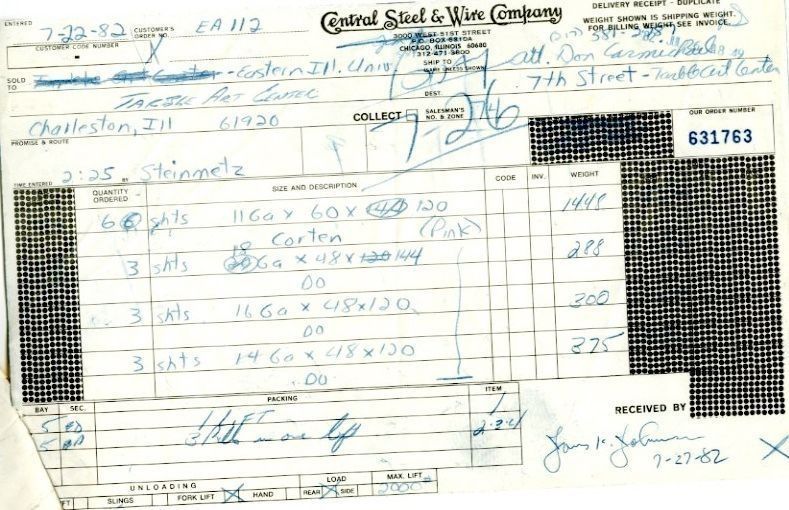 DELIVERY RECEIPT - DUPLICATE
ENTERED 7-22-82 CUSTOMER'S ORDER NO. EA 112
Central Steel & Wire Company
WEIGHT SHOWN IS SHIPPING WEIGHT.
FOR BILLING WEIGHT SEE INVOICE.
3000 WEST 51ST STREET
P.O. BOX 5310A
CHICAGO, ILLINOIS 60680
312-471-3800
CUSTOMER CODE NUMBER X
SHIP TO
SAME UNLESS SHOWN
Att. Don Carmichael
SOLD TO Eastern Ill. Univ.
7th Street - Tarble Art Center
TARBLE ART CENTER
DEST.
Charleston, Ill 61920
COLLECT SALESMAN'S NO. & ZONE
7-26
OUR ORDER NUMBER
631763
PROMISE & ROUTE
TIME ENTERED 2:25 BY Steinmetz
QUANTITY ORDERED SIZE AND DESCRIPTION CODE INV. WEIGHT
6 shts 11 Ga x 60 x 120 1448
Corten (Pink)
3 shts 18 Ga x 48 x 144 288
DO
3 shts 16 Ga x 48 x 120 300
DO
3 shts 14 Ga x 48 x 120 375
DO
BAY SEC. PACKING ITEM
5 1 LIFT 1
5 3 in one lift 2-3-4
RECEIVED BY
7-27-82
X
UNLOADING LOAD MAX. LIFT
FT SLINGS FORK LIFT X HAND REAR X SIDE 2000#